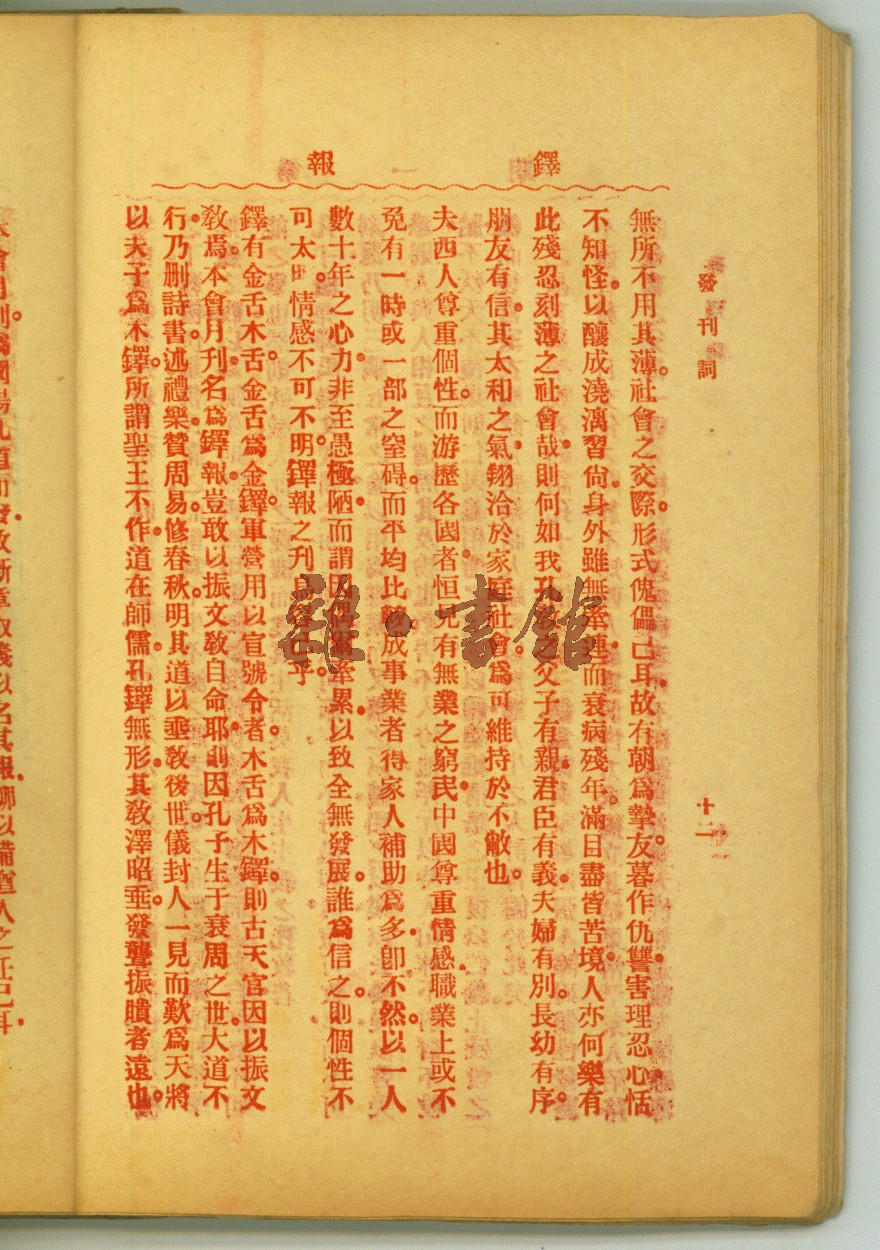 鐸報
發刊詞
十二
無所不用其薄。社會之交際。形式傀儡已耳。故有朝爲摯友。暮作仇讐。害理忍心。恬
不知怪。以釀成澆漓習尙。身外雖無牽而衰病殘年。滿目盡皆苦境。人亦何樂有
此殘忍刻薄之社會哉。則何如我孔敎之父子有親。君臣有義。夫婦有別。長幼有序。
朋友有信。其太和之氣。翔洽於家庭社會。爲可維持於不敝也。
夫西人尊重個性。而游歷各國者。恒見有無業之窮民。中國尊重情感。職業上或不
免有一時或一部之窒碍。而平均比較。成事業者得家人補助爲多。卽不然。以一人
數十年之心力。非至愚極陋。而謂因偶爾牽累。以致全無發展。誰爲信之。則個性不
可太明。情感不可不明。鐸報之刊。烏容已乎。
鐸有金舌木舌。金舌爲金鐸。軍營用以宣號令者。木舌爲木鐸。則古天官因以振文
敎焉。本會月刊。名爲鐸報。豈敢以振文敎自命耶。則因孔子生于衰周之世。大道不
行。乃刪詩書。述禮樂。贊周易。修春秋。明其道以垂敎後世。儀封人一見而歎爲天將
以夫子爲木鐸。所謂聖王不作。道在師儒。孔鐸無形。其敎澤昭垂。發聾振聵者遠也。
雜·書館